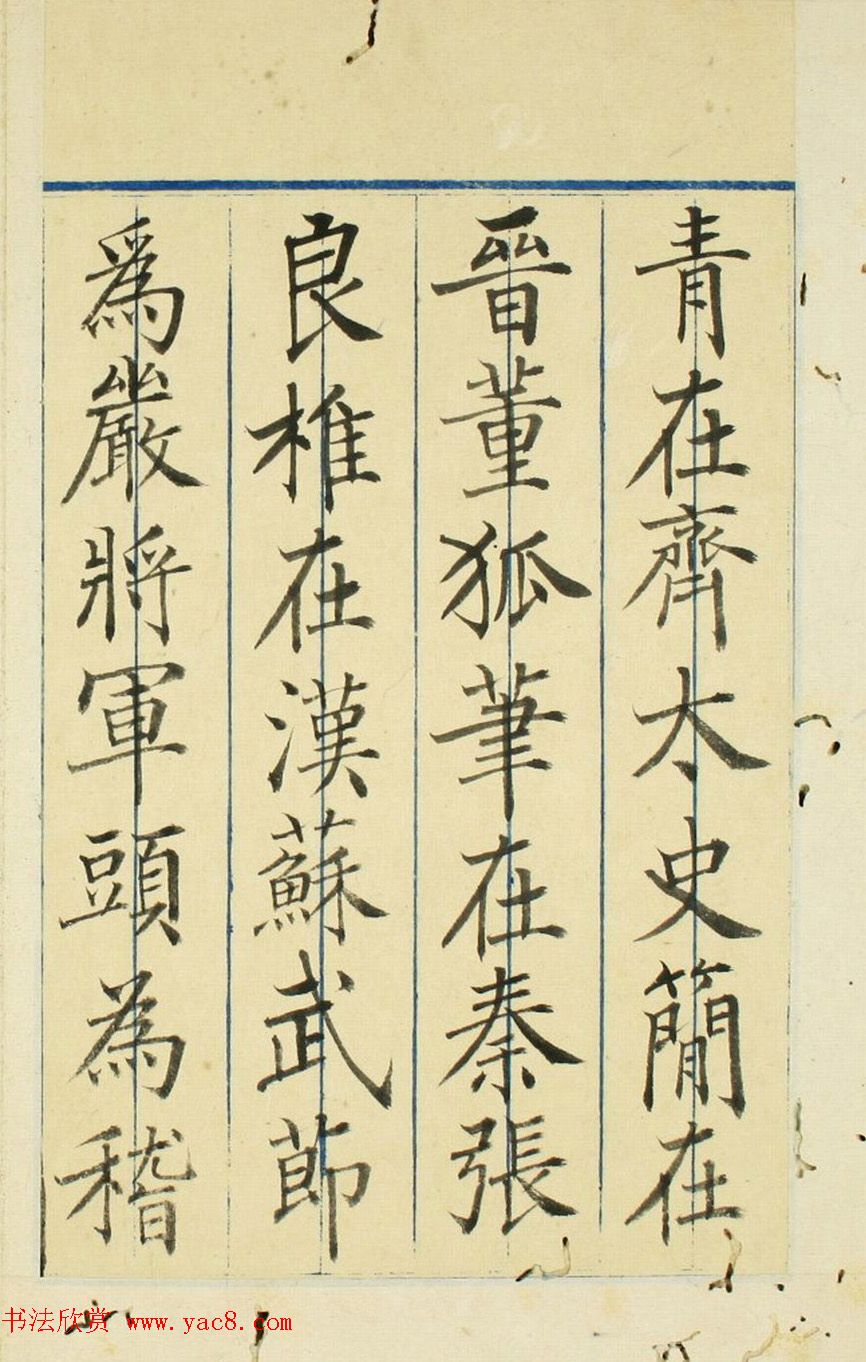 青在齊太史簡在
晉董狐筆在秦張
良椎在漢蘇武節
爲嚴將軍頭為嵇
书法欣赏 www.yac8.com